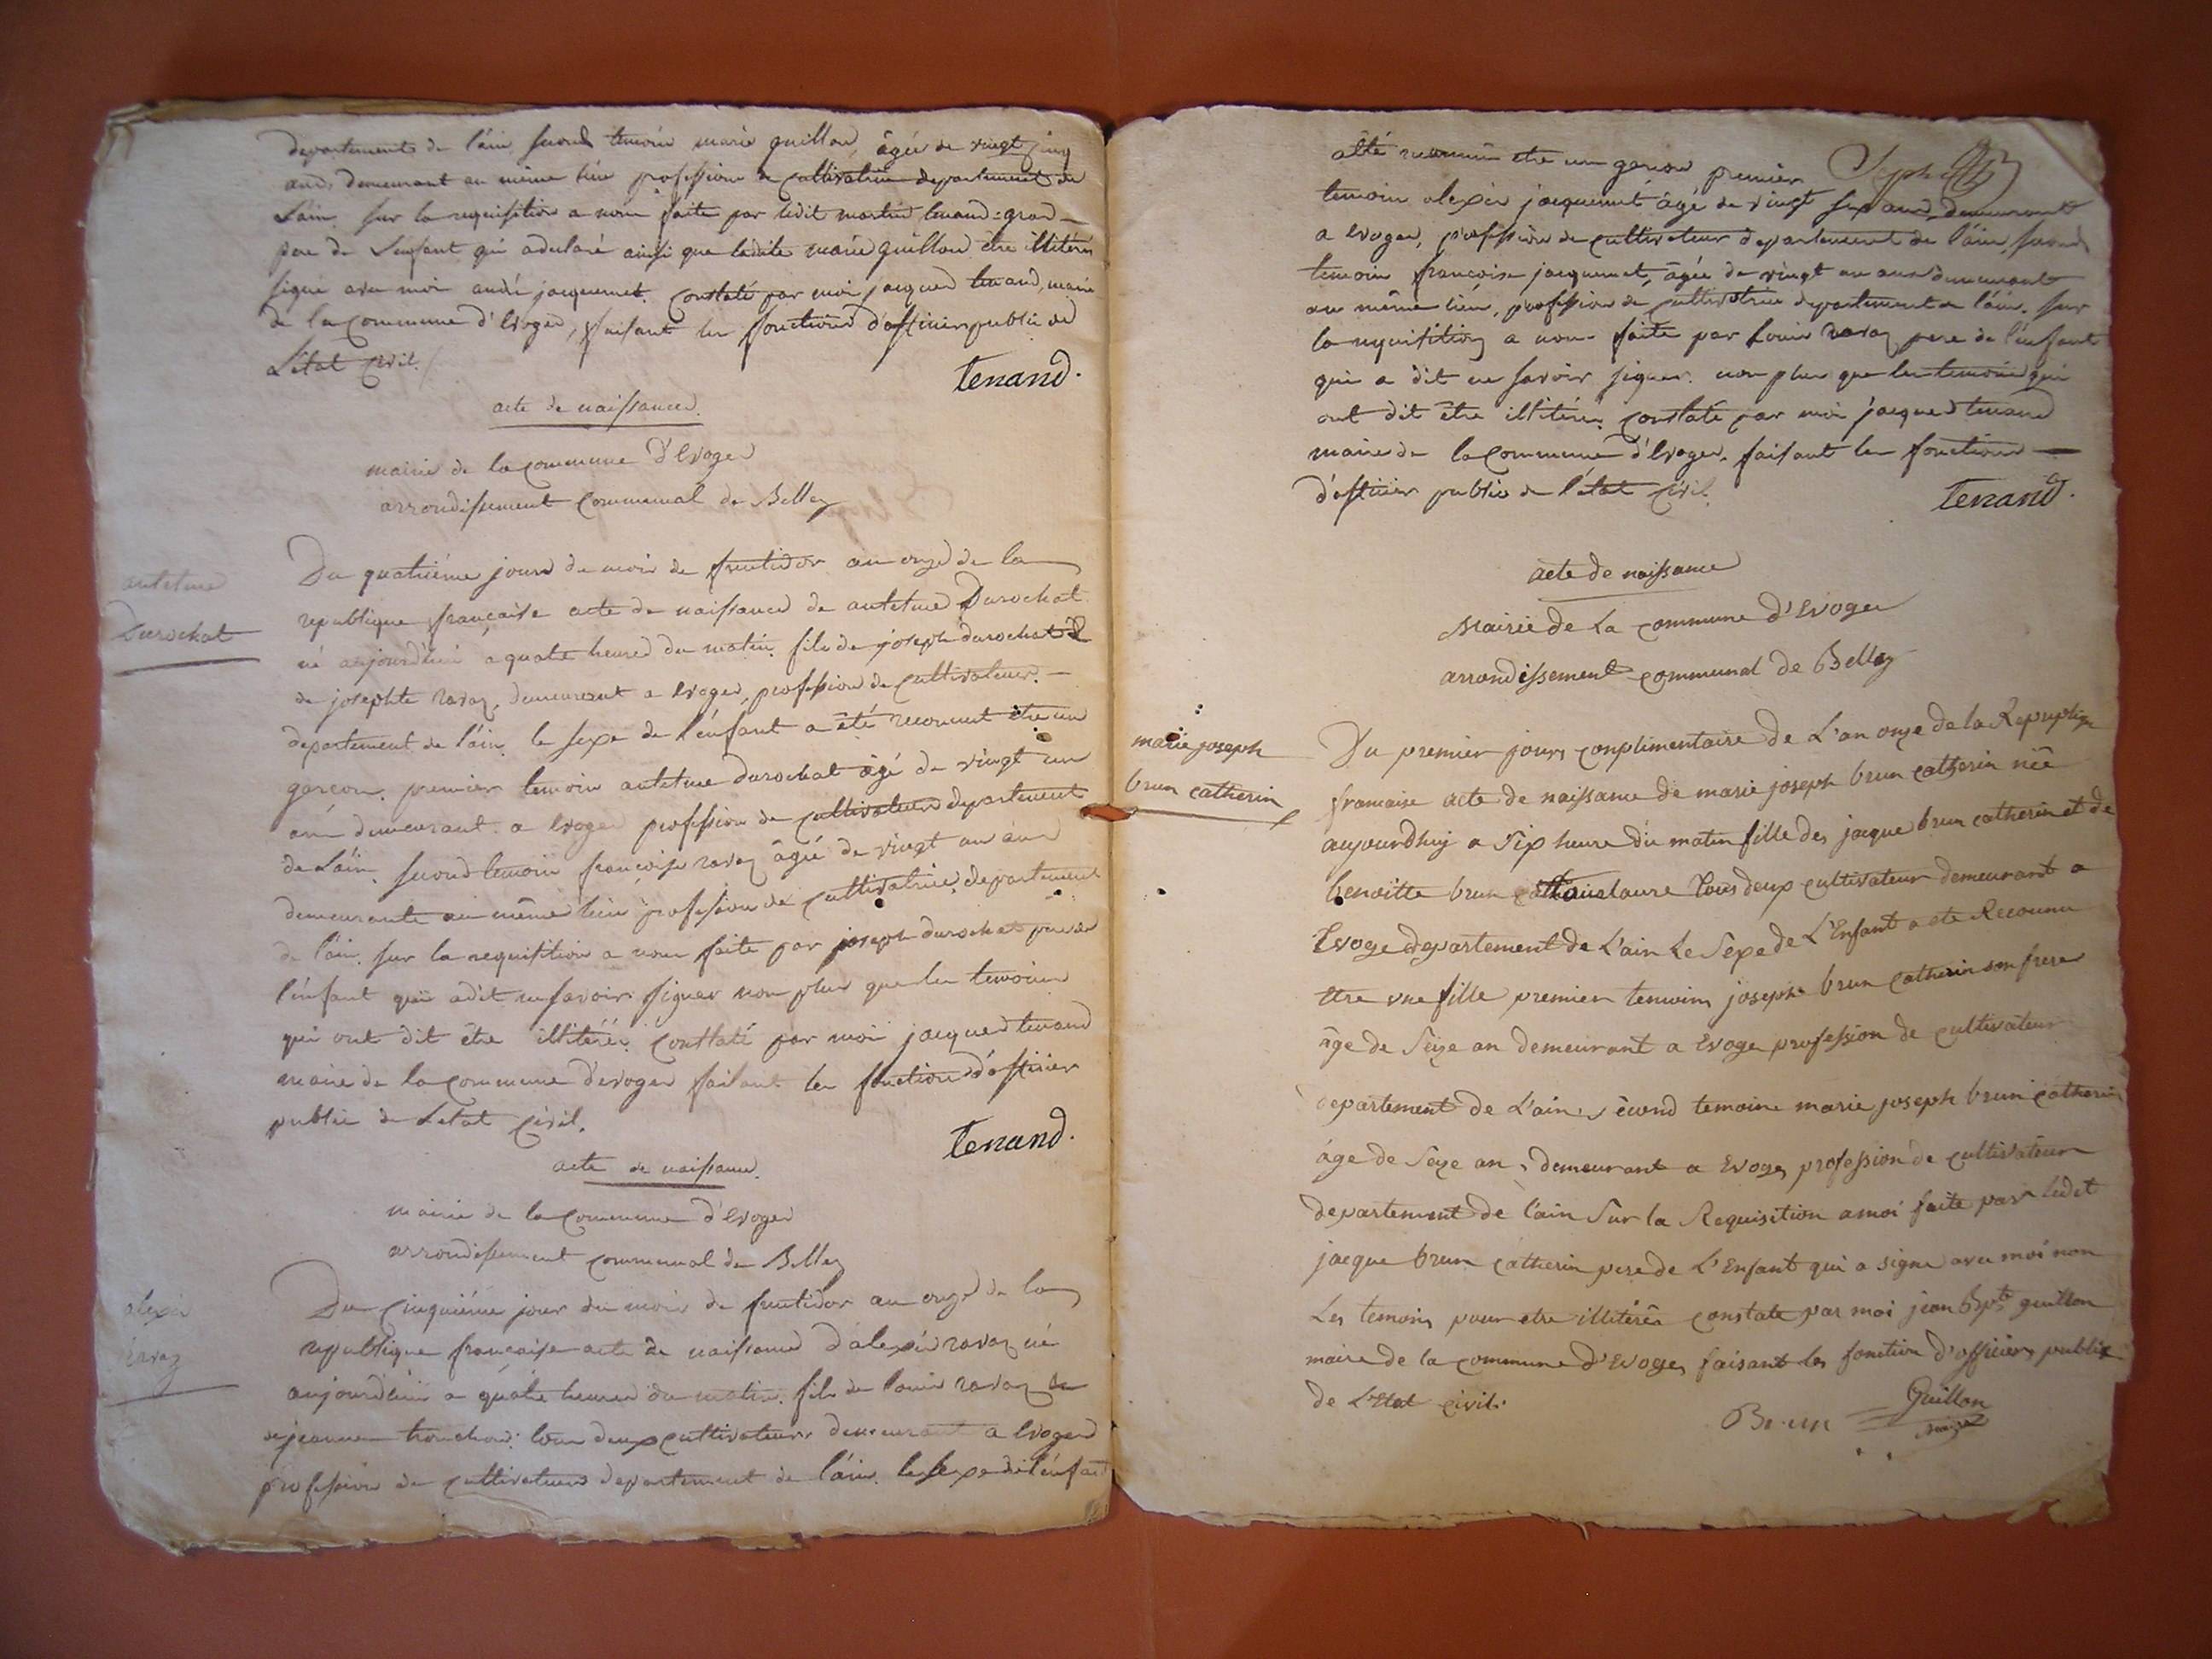 departement de l'ain, second temoin marie guillon, âgée de vingt cinq
ans, demeurant au même lieu profession de cultivatrice departement de
L'ain. sur la requisition a nous faite par ledit martin tenand grand
pere de l'enfant qui a declaré ainsi que ladite marie guillon être illitérés
signé avec moi andré jacquemet. constaté par moi jacques tenand, maire
de la commune d'Evoges, faisant les fonctions d'officier public de
L'état civil.
Tenand.
acte de naissance.
mairie de la commune d'Evoges
arrondissement communal de Belley
antelme
Durochat
Du quatriéme jour du mois de fructidor an onze de la
republique française acte de naissance de antelme Durochat
né aujourd'hui a quatre heures du matin. fils de joseph durochat et
de josephte ravaz, demeurant a Evoges, profession de cultivateur.
departement de l'ain. le sexe de l'enfant a été reconnut être un
garçon. premier temoin antelme durochat âgé de vingt un
ans demeurant a Evoges profession de cultivateur departement
de L'ain. second temoin françoise ravaz âgée de vingt un ans
demeurante au même lieu profession de cultivatrice, departement
de l'ain. sur la requisition a nous faite par joseph durochat pere de
l'enfant qui a dit ne savoir signer non plus que les temoins
qui ont dit être illitérés. constaté par moi jacques tenand
maire de la commune d'evoges faisant les fonctions d'officier
public de L'etat civil.
Tenand.
acte de naissance.
mairie de la commune d'Evoges
arrondissement communal de Belley
alexis
ravaz
Du cinquiéme jour du mois de fructidor an onze de la
republique française acte de naissance d'alexis ravaz né
aujourd'hui a quatre heures du matin. fils de louis ravaz et
de jeanne trouchon. tous deux cultivateurs demeurant a Evoges
profession de cultivateurs departement de l'ain. le sexe de l'enfant
a été reconnu etre un garcon premier
temoin alexis jacquemet âgé de vingt six ans, demeurant
a Evoges, profession de cultivateur departement de l'ain, second
temoin francoise jacquemet, âgée de vingt un ans demeurant
au même lieu, profession de cultivatrice departement de l'ain. sur
la requisition a nous faite par Louis ravaz pere de l'enfant
qui a dit ne savoir signer. non plus que les temoins qui
ont dit être illitérés. constaté par moi jacques tenand
maire de la commune d'Evoges. faisant les fonctions
d'officier public de l'état civil.
Tenand.
acte de naissance
Mairie de La commune d'Evoges
arrondissement communal de Belley
marie joseph
brun catherin
Du premier jours conplimentaire de L'an onze de la Republique
francaise acte de naissance de marie joseph brun catherin née
aujourdhuy a six heure du matin fille des jacque brun catherin et de
benoitte brun laure tous deux cultivateur demeurant a
Evoge departement de L'ain Le Sexe de L'Enfant a ete Reconnu
être une fille premier temoins joseph brun catherin son frere
âge de seize an demeurant a Evoge profession de cultivateur
departement de L'ain, second temoine marie joseph brun catherin
âge de seize an, demeurant a Evoges profession de cultivateur
departement de l'ain sur la Requisition a moi faite par ledit
jacque brun catherin pere de L'Enfant qui a signe avec moi non
Les temoins pour etre illiterés constate par moi jean Bpte guillon
maire de la commune d'Evoges faisant les fonction d'officier public
de L'Etat civil.
Brun Guillon
maire